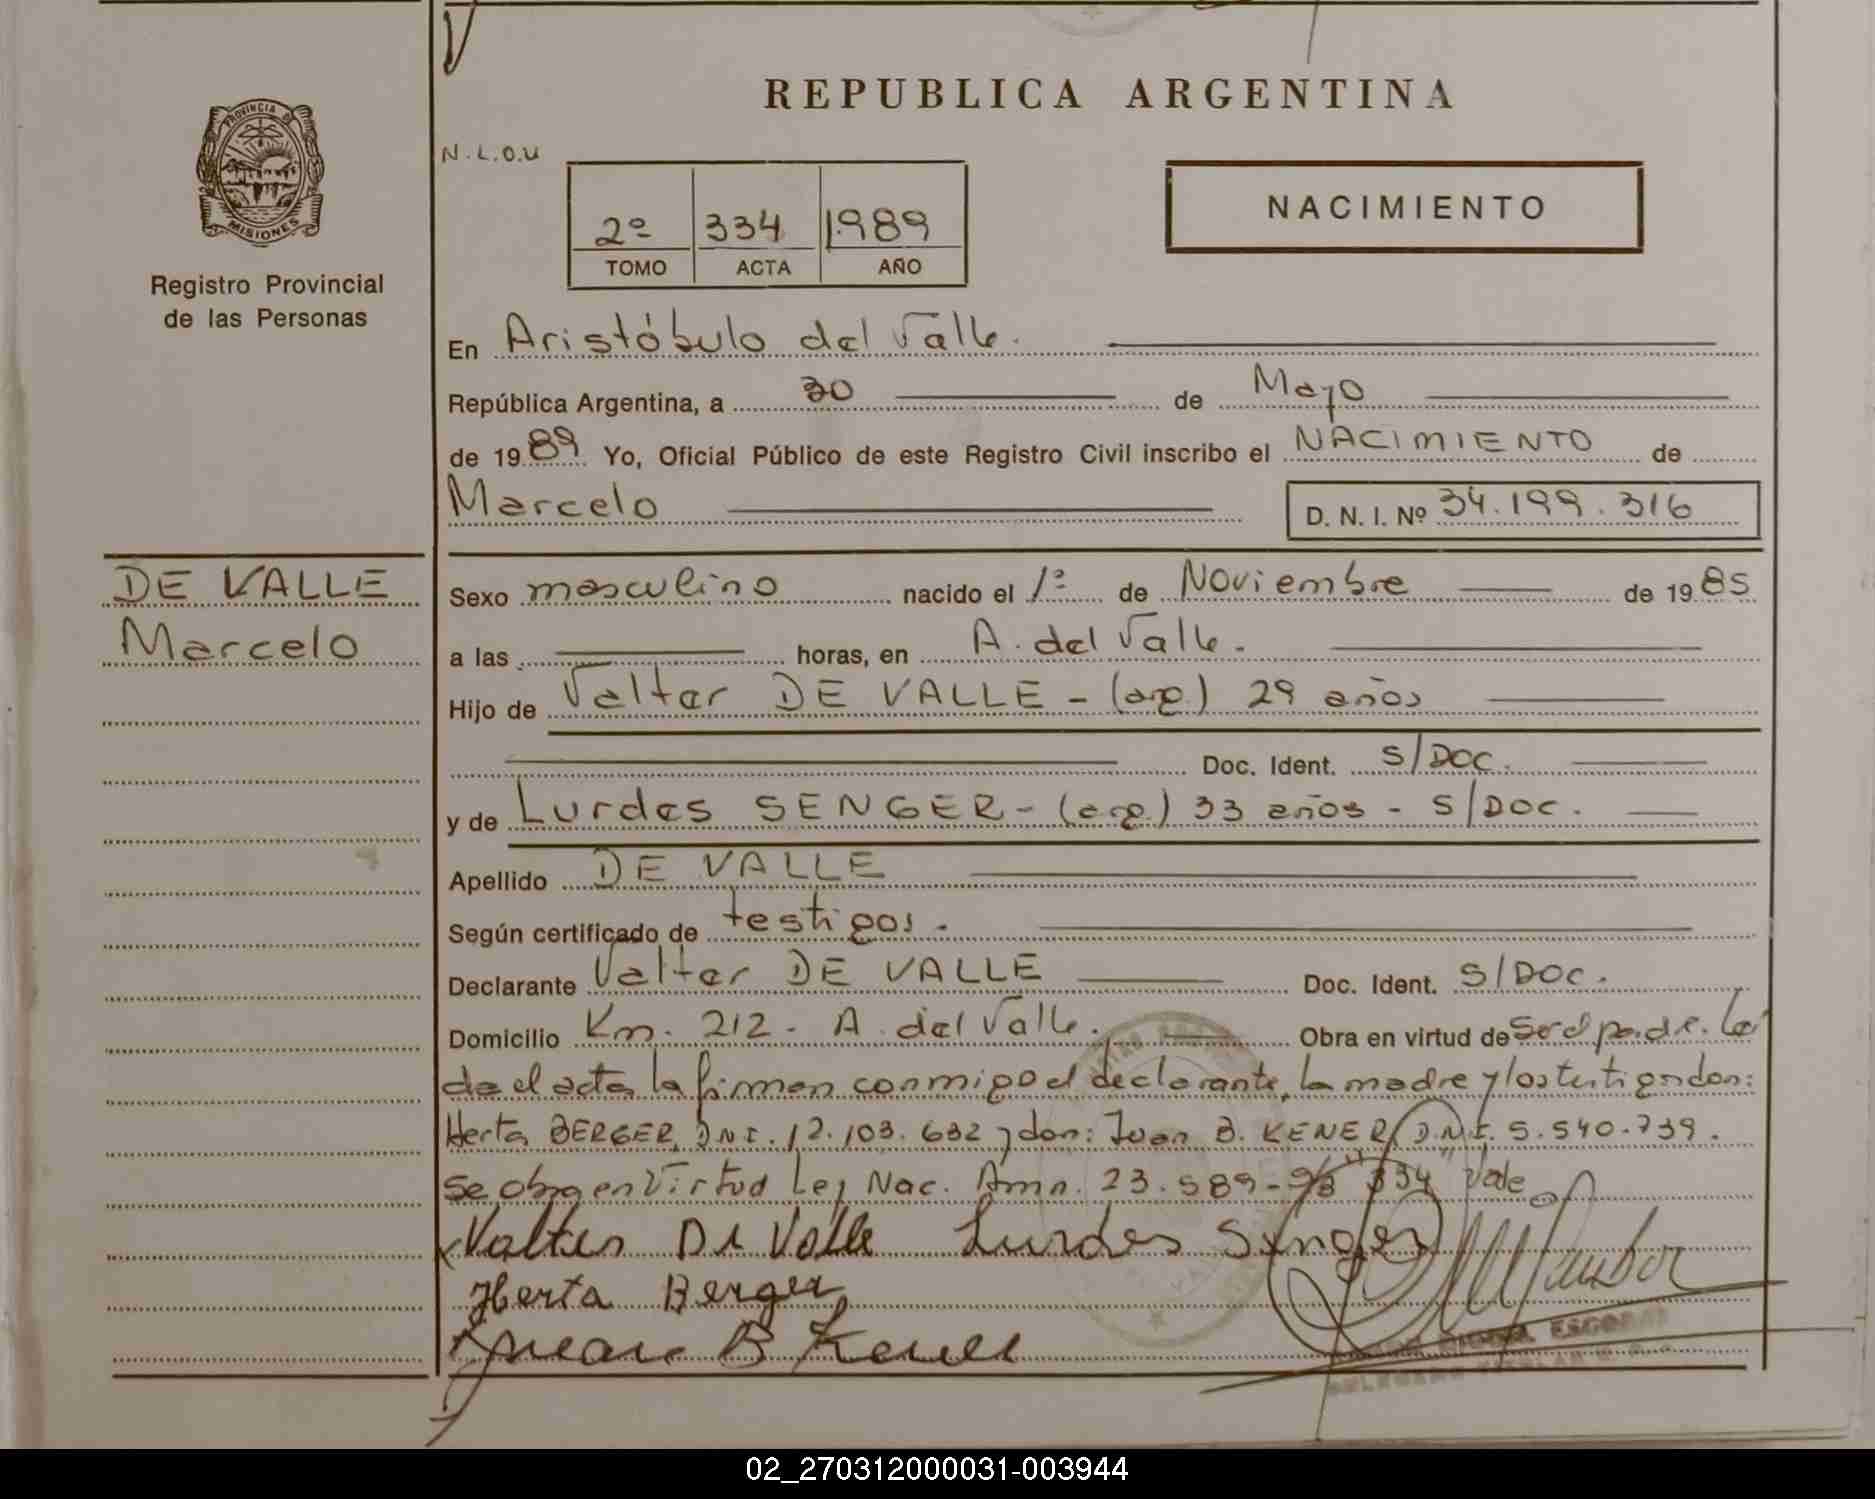 REPUBLICA ARGENTINA
PROVINCIA DE
MISIONES
Registro Provincial
de las Personas
N.L.O.U
2º 334 1989
TOMO ACTA AÑO
NACIMIENTO
En Aristóbulo del Valle.
República Argentina, a 30 de Mayo
de 1989 Yo, Oficial Público de este Registro Civil inscribo el NACIMIENTO de
Marcelo D. N. I. Nº 34.199.316
DE VALLE
Marcelo
Sexo masculino nacido el 1º de Noviembre de 1985
a las horas, en A. del Valle.
Hijo de Valter DE VALLE - (arg) 29 años
Doc. Ident. S/DOC.
y de Lurdes SENGER - (arg) 33 años - S/DOC.
Apellido DE VALLE
Según certificado de testigos.
Declarante Valter DE VALLE Doc. Ident. S/DOC.
Domicilio Km. 212 - A. del Valle. Obra en virtud de Ser el padre. Leí
da el acta, la firman conmigo el declarante, la madre y los testigos don:
Herta BERGER, D.N.I. 12.103.632 y don: Juan B. KENER, D.N.I. 5.540.739.
Se obra en Virtud Ley Nac. Amn. 23.589 - "334" Vale
Valter De Valle Lurdes Senger
Herta Berger
Juan B Kener
ESCOBAR
02_270312000031-003944